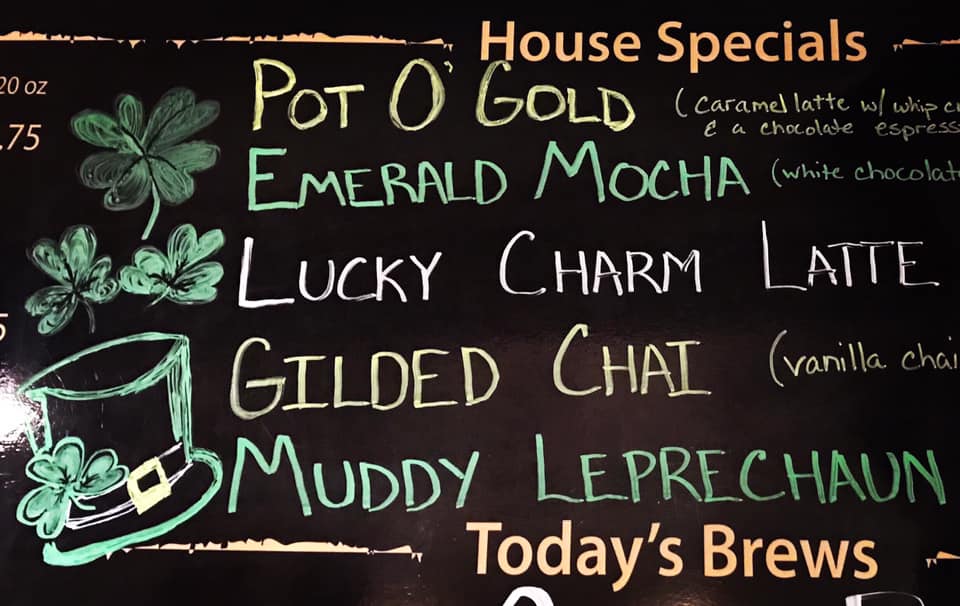 House Specials
20 oz
.75
POT O' GOLD (caramel latte w/ whip
& a chocolate
EMERALD MOCHA (white
LUCKY CHARM LATTE
GILDED CHAI (vanilla chai
MUDDY LEPRECHAUN
Today's Brews